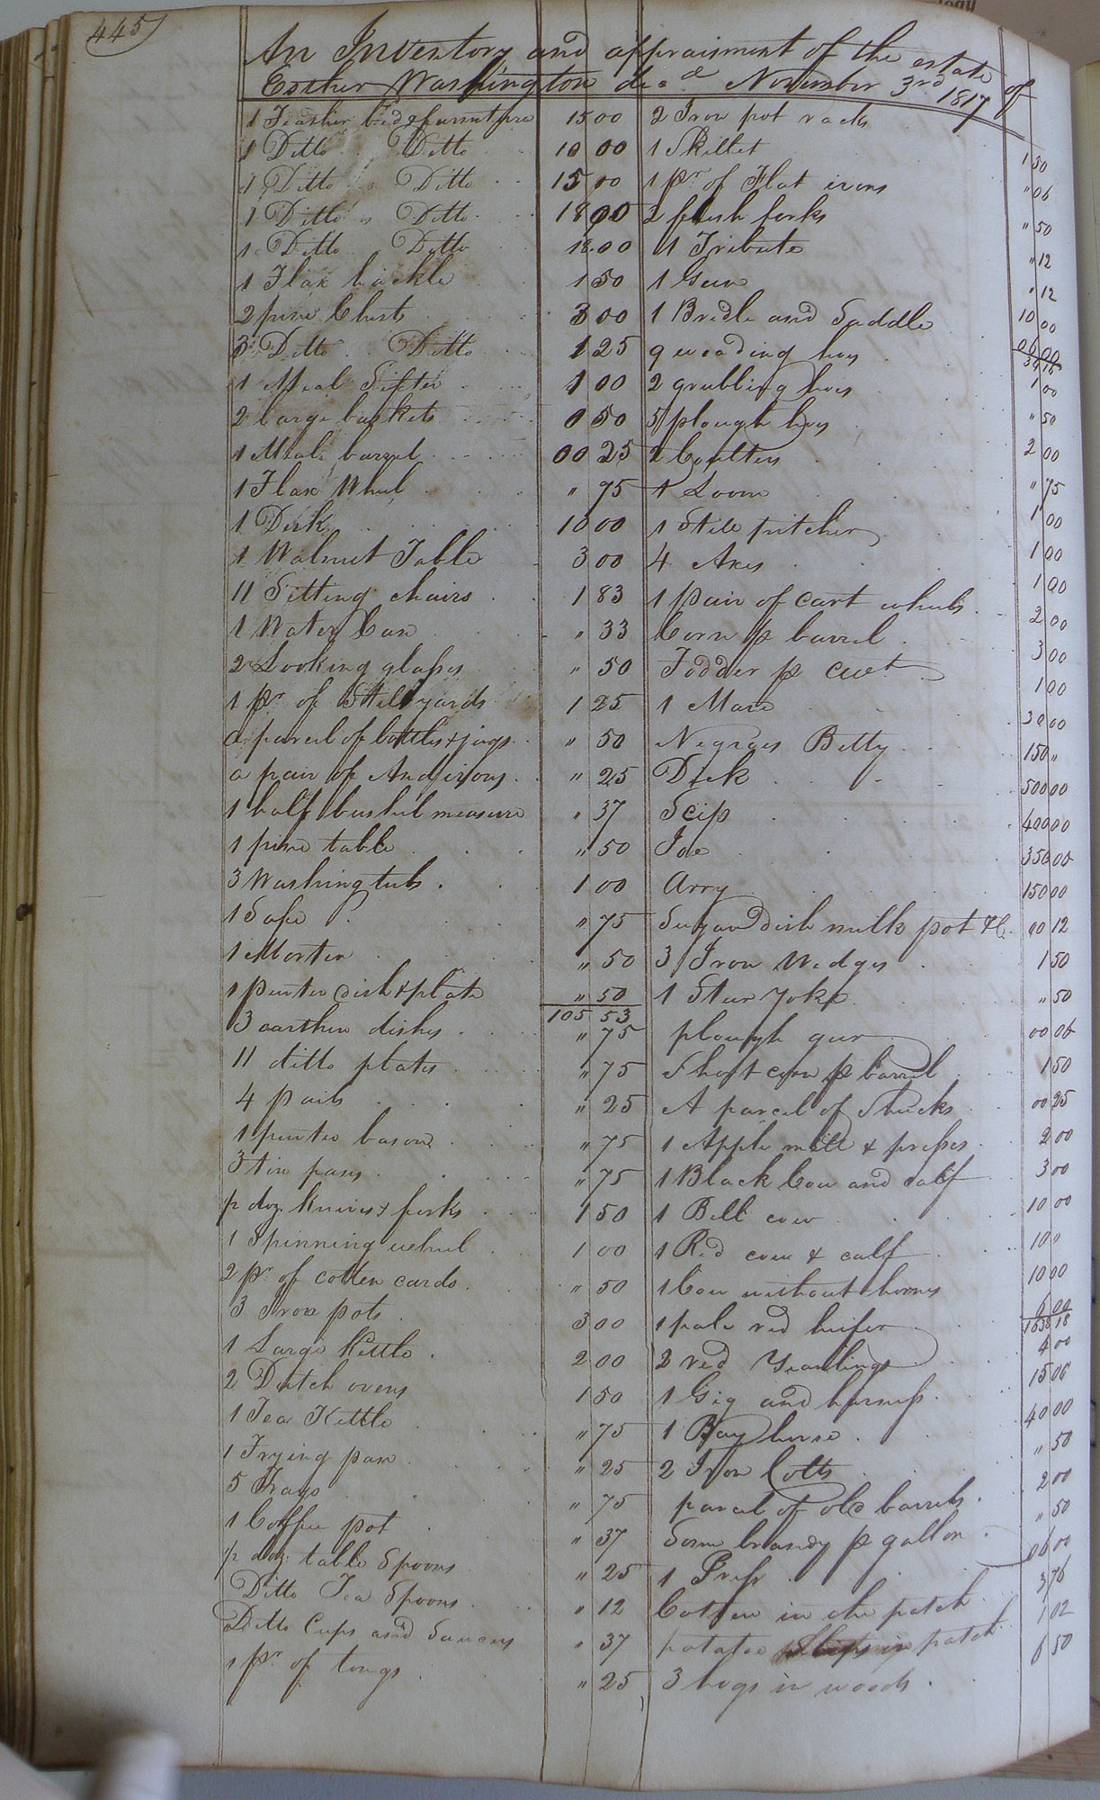 445
An Inventory and appraisment of the estate of
Esther Washington decd November 3rd 1817
1 Feather bed & furniture 15 00
1 Ditto Ditto 10 00
1 Ditto Ditto 15 00
1 Ditto Ditto 18 00
1 Ditto Ditto 18 00
1 Flax hackle 1 50
2 pine Chests 3 00
3 Ditto Ditto 1 25
1 Meal Sifter 1 00
2 large baskets 0 50
1 Meale barrel 00 25
1 Flax Wheel " 75
1 Desk 10 00
1 Walnut Table 3 00
11 Sitting chairs 1 83
1 Water Can " 33
2 Looking glasses " 50
1 pr of Stillyards 1 25
a parcel of bottles & jugs " 50
a pair of Andirons " 25
1 half bushel measure " 37
1 pine table " 50
3 Washing tubs 1 00
1 Safe " 75
1 Morter " 50
1 pewter dish & plate " 50
105 53
3 earthen dishes " 75
11 ditto plates " 75
4 pails " 25
1 pewter bason " 75
3 tin pans " 75
p doz knives & forks 1 50
1 Spinning wheel 1 00
2 pr of cotten cards " 50
3 Iron pots 3 00
1 Large Kettle 2 00
2 Dutch ovens 1 50
1 Tea Kettle " 75
1 Frying pan " 25
5 " 75
1 Coffee pot " 37
p doz. table Spoons " 25
Ditto Tea Spoons " 12
Ditto Cups and Saucers " 37
1 pr of tongs " 25
2 Iron pot racks 1 50
1 Skillet " 06
1 pr of Flat irons " 50
2 flesh forks " 12
1 " 12
1 Gun 10 00
1 Bridle and Saddle
9 weeding hoes 1 00
2 grubbing hoes " 50
5 plough hoes 2 00
2 Coulters " 75
1 Loom 1 00
1 pitcher 1 00
4 Axes 1 00
1 pair of cart wheels 2 00
Corn p barrel 3 00
Fodder p cwt 1 00
1 Mare 30 00
Negroes Betty 150 "
Dick 500 00
Scip 400 00
Joe 350 00
Arry 150 00
Sugar dish milk pot &C 00 12
3 Iron Wedges 1 50
1 Steer Yoke " 50
plough gear 00 06
Short corn p barrel 1 50
A parcel of Shucks 00 25
1 Apple mill & presses 2 00
1 Black Cow and calf 3 00
1 Bell cow 10 00
1 Red cow & calf 10 "
1 Cow without hornes 10 00
1 pale red heifer
2 red Yearlings 4 00
1 Gig and harness 15 00
1 Bay horse 40 00
2 Iron Colts " 50
parcel of old barrels 2 00
Some brandy p gallon " 50
1 Press
Cotten in the patch
potatoe in patch 1 02
3 hogs in woods 6 50